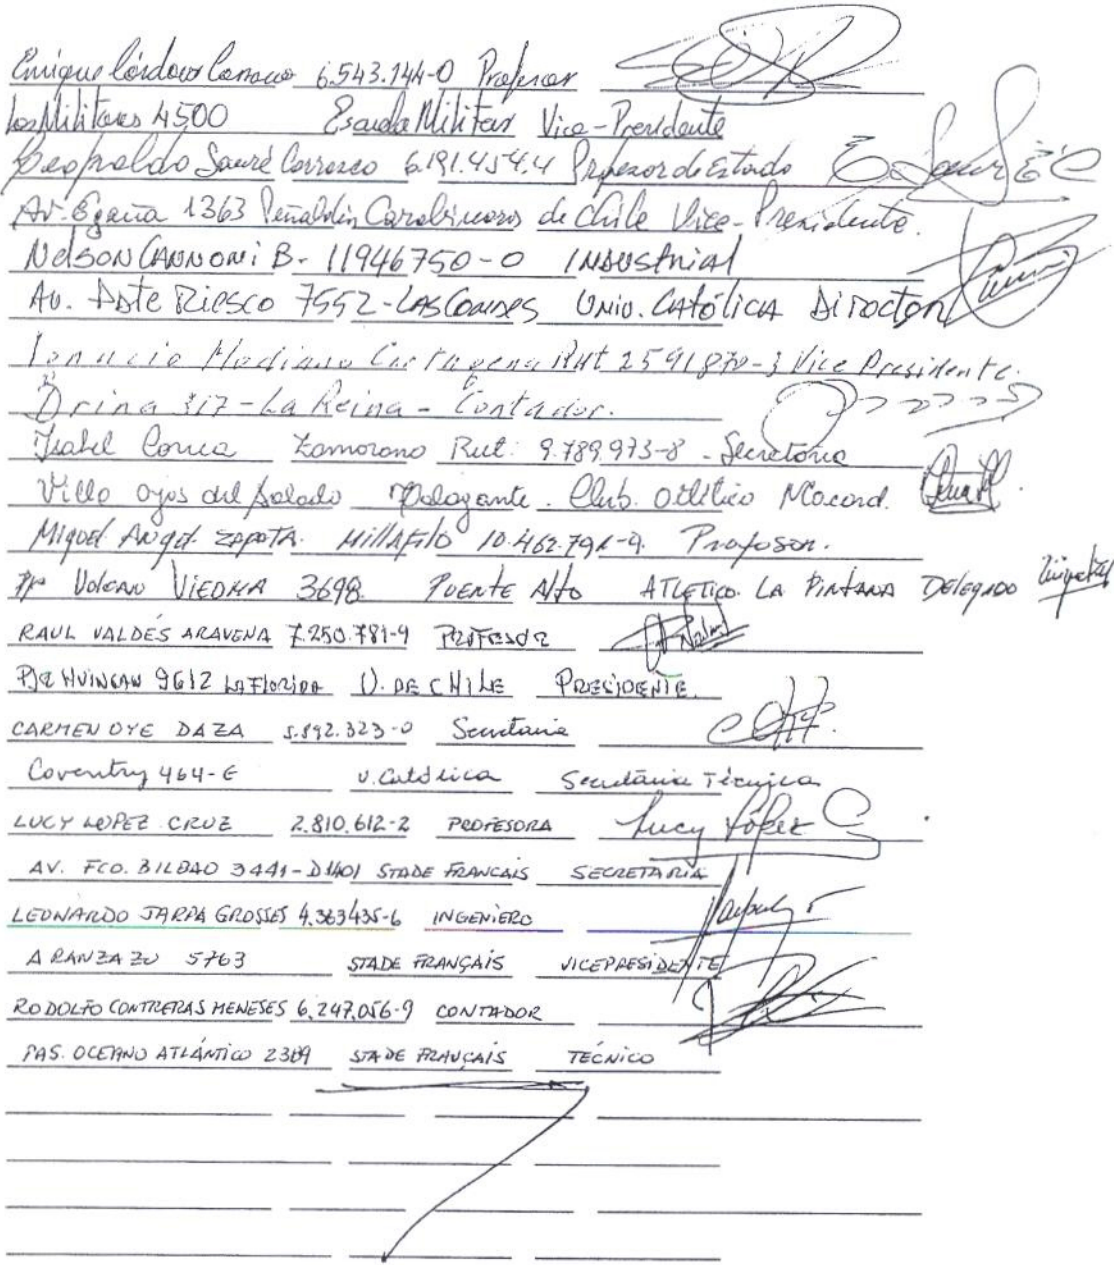 Enrique Córdova Carrasco 6.543.144-0 Profesor
Los Militares 4500 Escuela Militar Vice-Presidente
Leopoldo Sauré Carrasco 6.191.454.4 Profesor de Estado
Av. Egaña 1363 Peñalolén Carabineros de Chile Vice-Presidente.
NELSON CANNONI B- 11946750-0 INDUSTRIAL
Av. Pdte Riesco 7552-LAS CONDES UNIV. CATÓLICA DIRECTOR
Ignacio Mediano Cartagena Rut 2591870-3 Vice Presidente.
Drina 317-La Reina- Contador.
Isabel Correa Zamorano Rut: 9.789.973-8 - Secretaria
Villa Ojos del Salado Talagante. Club. Atlético Macond.
Miguel Angel ZAPATA Millafilo 10.462.791-9. Profesor.
VOLCAN VIEDMA 3698 PUENTE Alto ATLETICO LA PINTANA DELEGADO
RAUL VALDÉS ARAVENA 7.250.781-9 PROFESOR
PJE HUINGAN 9612 LA FLORIDA U. DE CHILE PRESIDENTE.
CARMEN OYE DAZA 5.892.323-0 Secretaria
Coventry 464-E U. Católica Secretaria Técnica
LUCY LOPEZ CRUZ 2.810.612-2 PROFESORA Lucy López C
AV. FCO. BILBAO 3441-D1401 STADE FRANCAIS SECRETARIA
LEONARDO JARPA GROSSES 4.363435-6 INGENIERO
ARANZAZU 5763 STADE FRANÇAIS VICEPRESIDENTE
RODOLFO CONTRERAS MENESES 6.247.056-9 CONTADOR
PAS. OCEANO ATLÁNTICO 2309 STADE FRANÇAIS TÉCNICO